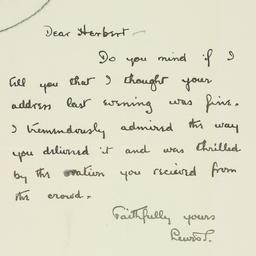 Dear Herbert -
Do you mind if I
tell you that I thought your
address last evening was fine.
I tremendously admired the way
you delivered it and was thrilled
by the ovation you recieved from
the crowd.
Faithfully yours